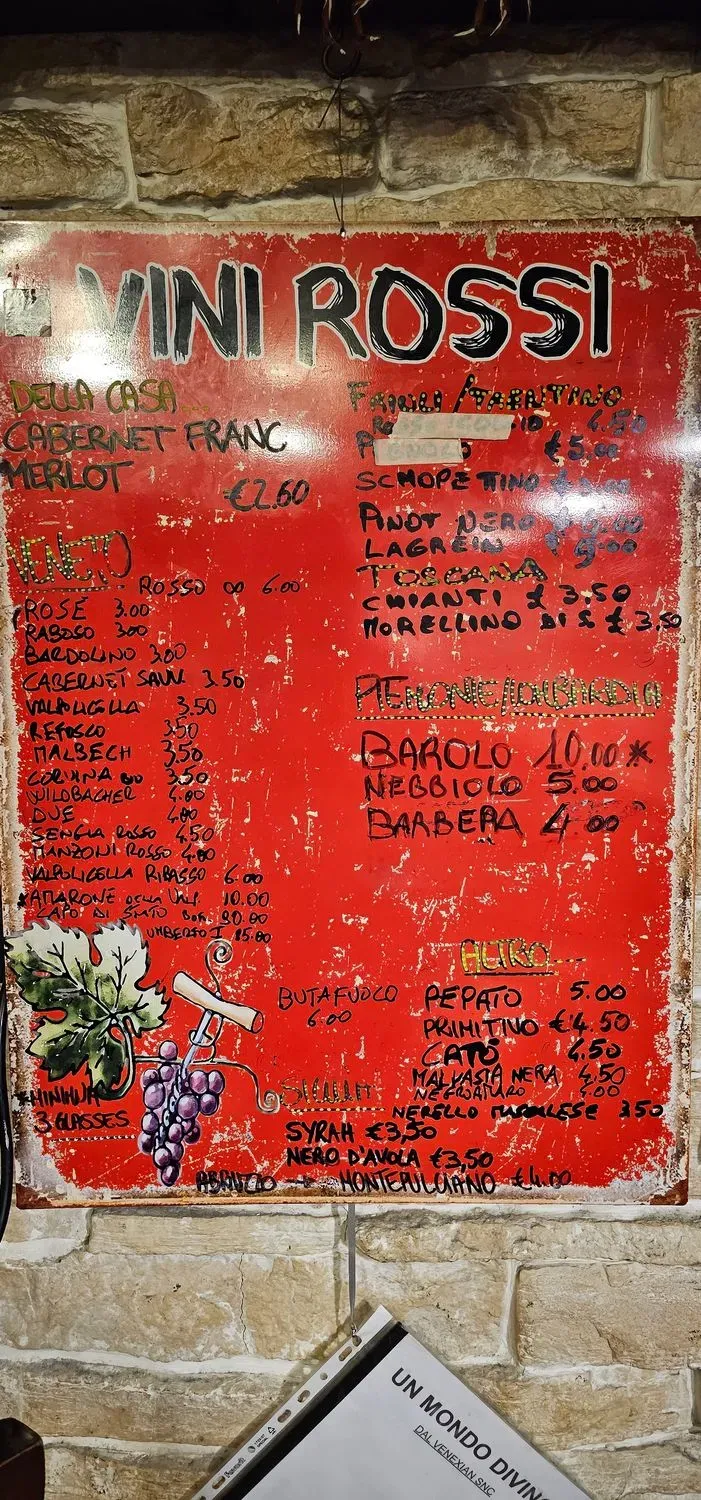 VINI ROSSI
DELLA CASA...
CABERNET FRANC
MERLOT
€2.60
VENETO
ROSSO 6.00
ROSE 3.00
RABOSO 3.00
BARDOLINO 3.00
CABERNET SAUV. 3.50
VALPOLICELLA 3.50
REFOSCO 3.50
MALBECH 3.50
CORVINA 3.50
WILDBACHER 4.00
DUE 4.00
SENGIA ROSSO 4.50
MANZONI ROSSO 4.00
VALPOLICELLA RIPASSO 6.00
*AMARONE DELLA VALP. 10.00
CAPO DI STATO
UMBERTO I 15.00
*MINIMUM
3 GLASSES
FRIULI/TRENTINO
4.50
€5.00
SCHOPETTINO
PINOT NERO
LAGREIN
TOSCANA
CHIANTI £ 3.50
MORELLINO DI S £ 3.50
PIEMONTE/LOMBARDIA
BAROLO 10.00*
NEBBIOLO 5.00
BARBERA 4.00
BUTAFUOCO
6.00
ALTRO...
PEPATO 5.00
PRIMITIVO €4.50
CATÒ 4.50
MALVASIA NERA 4.50
NEGROAMARO 4.00
SICILIA
NERELLO MASCALESE 3.50
SYRAH €3,50
NERO D'AVOLA €3,50
ABRUZZO → MONTEPULCIANO €4.00
UN MONDO DIVIN
DAL VENEXIAN SNC